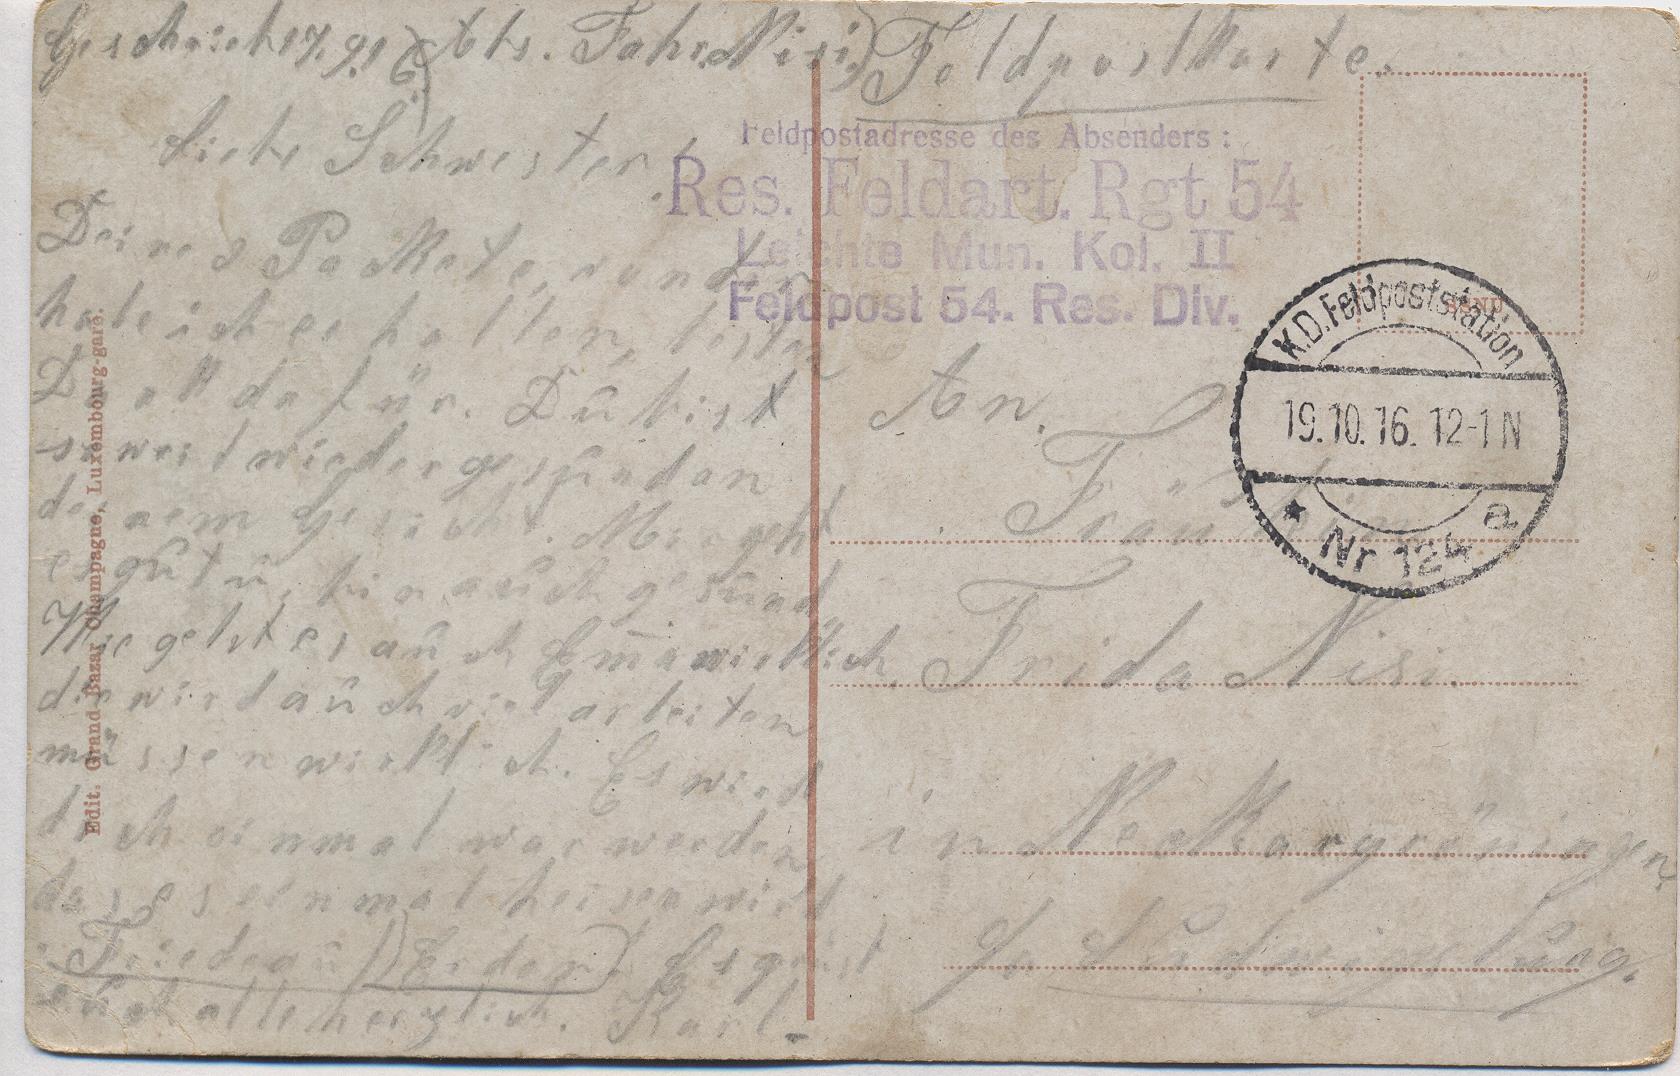 Geschrieben 17.9.16) Abs. Fahr. Nisi.) Feldpostkarte.
Liebe Schwester!
Deines Packete, vonder
habe ich erhalten, besten
Dank dafür. Du bist
soweit wieder gesund an
deinem Gesicht. Mir geht
es gut u. bin auch gesund
Wie geht es auch Emma wirklich
die wird auch viel arbeiten
müssen wirklich. Es wird
doch einmal war werden
dass es einmal heisen wird
Friede auf Erden) Es grüst
euch alle herzlich. Karl
Edit. Grand Bazar Champagne, Luxembourg-gare.
Feldpostadresse des Absenders:
Res. Feldart. Rgt 54
Leichte Mun. Kol. II
Feldpost 54. Res. Div.
K.D. Feldpoststation
19.10.16. 12-1 N
* Nr 124 a
An.
Fräulein
Frida Nisi.
in Neckargröningen
b/ Ludwigsburg.